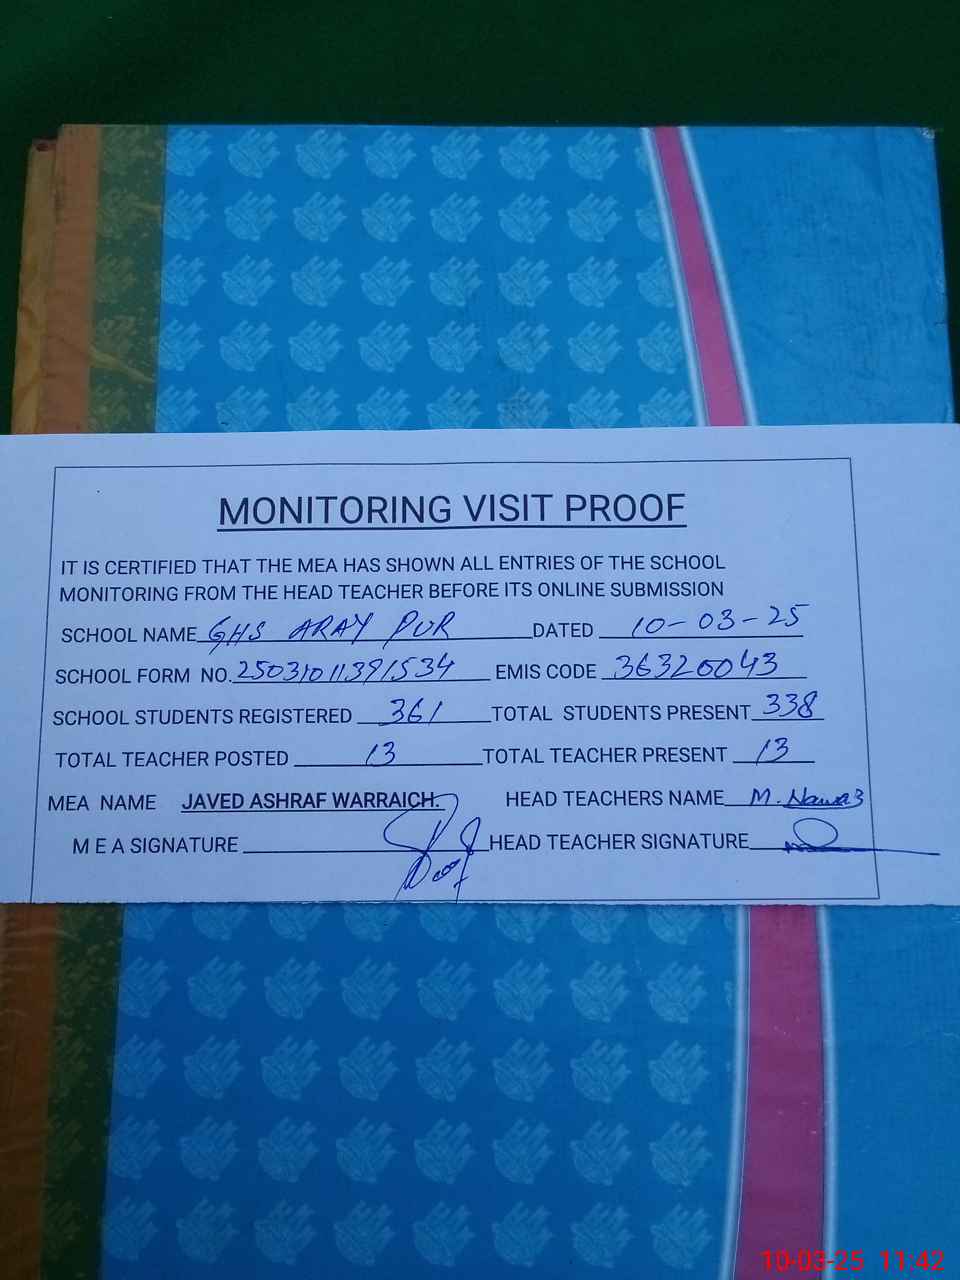 MONITORING VISIT PROOF
IT IS CERTIFIED THAT THE MEA HAS SHOWN ALL ENTRIES OF THE SCHOOL
MONITORING FROM THE HEAD TEACHER BEFORE ITS ONLINE SUBMISSION
SCHOOL NAME GHS ARAY PUR DATED 10-03-25
SCHOOL FORM NO. 25031011391534 EMIS CODE 36320043
SCHOOL STUDENTS REGISTERED 361 TOTAL STUDENTS PRESENT 338
TOTAL TEACHER POSTED 13 TOTAL TEACHER PRESENT 13
MEA NAME JAVED ASHRAF WARRAICH. HEAD TEACHERS NAME M. Nawaz
M E A SIGNATURE HEAD TEACHER SIGNATURE
10-03-25 11:42